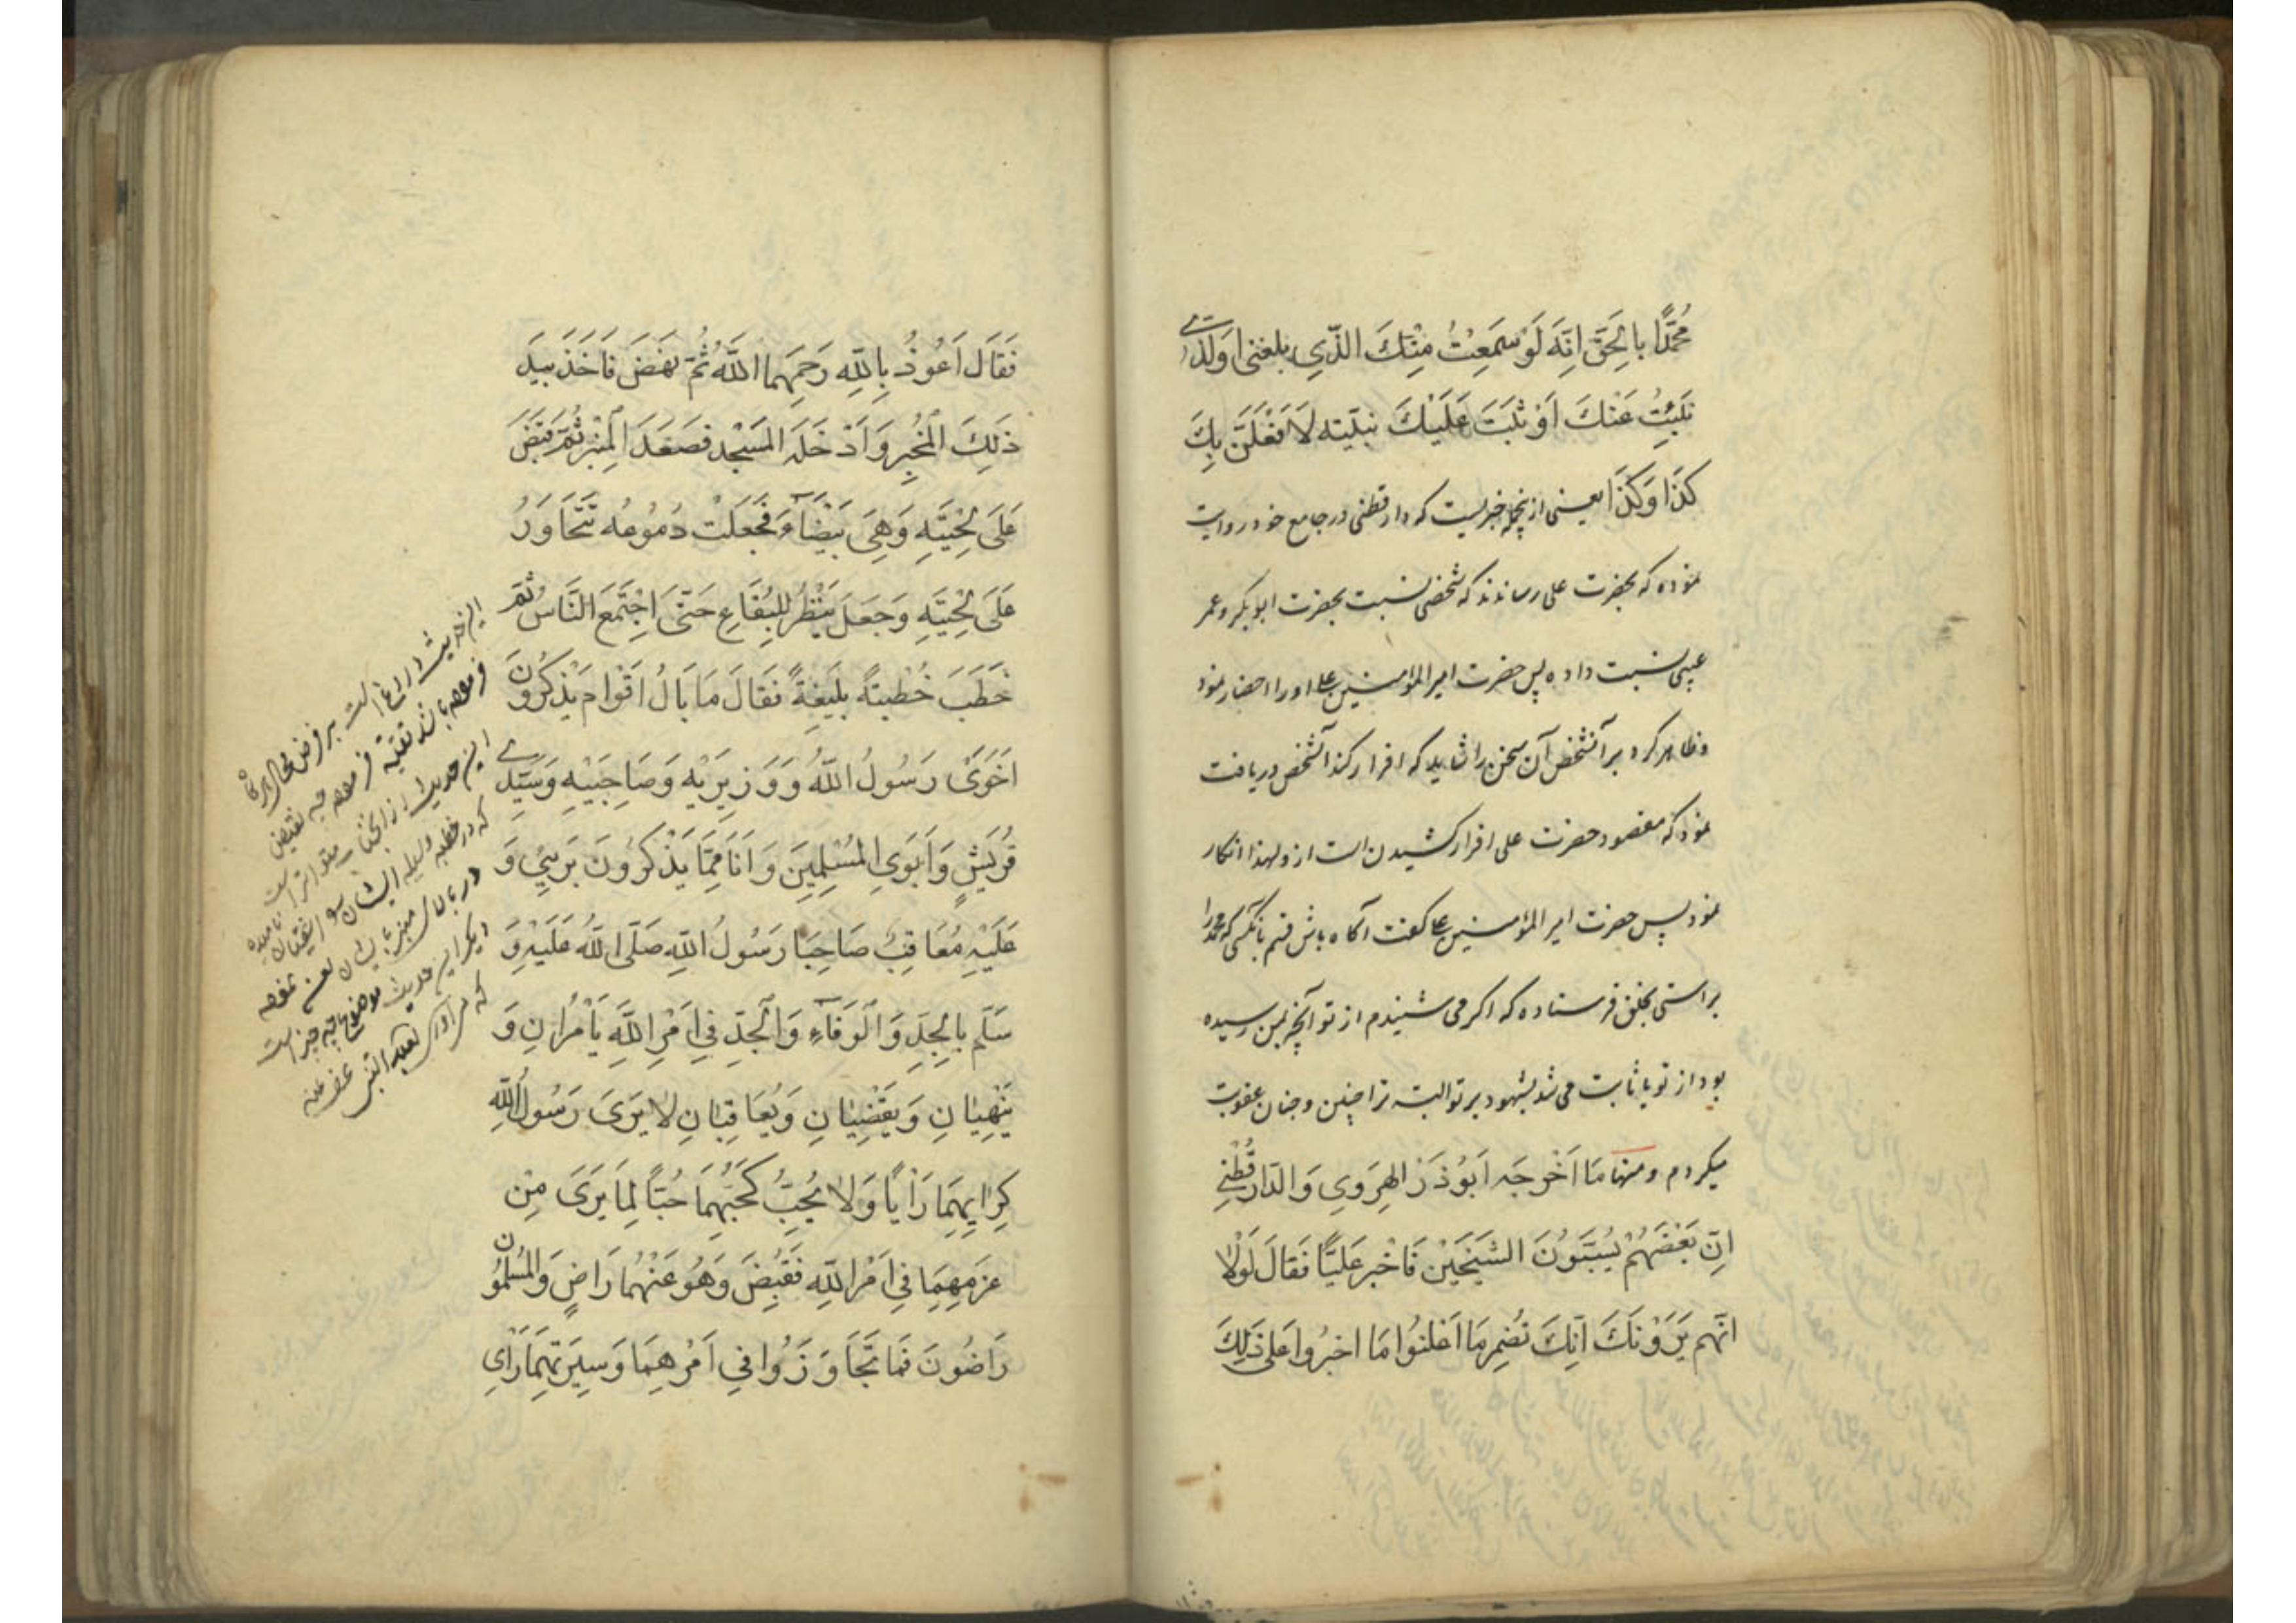 مُحَمَّدًا بِالْحَقِّ اِنَّهُ لَوْ سَمِعْتُ مِنْكَ الَّذِي بلغني اولدی
عَنْكَ اَوْ ثَبَتَ عَلَيْكَ لَاَفْعَلَنَّ بِكَ
كَذَا وَكَذَا یعنی ازینجمله خبریست که دارقطنی در جامع خود روایت
نموده که بحضرت علی رساندند که شخصی نسبت بحضرت ابوبکر و عمر
عیبی نسبت داده پس حضرت امیرالمؤمنین علی او را احضار نمود
و ظاهر کرد بر آنشخص آن سخن را شاید که اقرار کند آنشخص دریافت
نمود که مقصود حضرت علی اقرار کشیدن است از و لهذا انکار
نمود پس حضرت امیرالمؤمنین علی گفت آگاه باش قسم بآنکسی که محمد را
براستی بخلق فرستاده که اگر می شنیدم از تو آنچه بمن رسیده
بود از تو یا ثابت می شد بشهود بر تو البته ترا چنین و چنان عقوبت
میکردم و منها مَا اَخْرَجَه اَبُوذَر الهِرَوِي وَالدّارقُطْنِي
اِنَّ بَعْضَهُمْ يَسُبُّونَ الشَيْخَيْن فَاَخْبَر عَلِيًّا فَقَالَ لَوْلَا
اَنَّهُم يَرَوْنَكَ اَنَّكَ تُضْمِر مَا اَعْلَنُوا مَا اجترُوا عَلى ذَلِكَ
فَقَالَ اَعُوذُ بِاللّهِ رَحِمَهُمَا اللَّهُ ثُمَّ نَهَضَ فَاَخَذَ بِيَدِ
ذَلِكَ الْمُخْبِرِ وَاَدْخَلَهُ الْمَسْجِد فَصَعَدَ الْمِنْبَر ثُمَّ قَبَضَ
عَلَى لِحْيَتِهِ وَهِيَ بَيْضَاءُ فَجَعَلَتْ دُمُوعُه تَتَحَاوَرُ
عَلَى لِحْيَتِهِ وَجَعَلَ يَنْظُرُ لِلْبِقَاعِ حَتَّى اجْتَمَعَ النَّاسُ ثُمَّ
خَطَبَ خُطْبَةً بَلِيغَةً فَقَالَ مَا بَالُ اَقْوَام يَذْكُرُونَ
اَخَوَيْ رَسُولُ اللَّهُ وَوَزِيرَيْهِ وَصَاحِبَيْهِ وَسَيِّدَيْ
قُرَيْشٍ وَاَبَوَيِ الْمُسْلِمِينَ وَاَنَا مِمَّا يَذْكُرُونَ بَرِيءٌ وَ
عَلَيْهِ مُعَاقِبٌ صَاحِبَا رَسُولُ اللّهِ صَلَّى اللّهُ عَلَيْهِ وَ
سَلَّم بِالْجِدِّ وَالْوَفَاءِ وَالْجَدّ فِي اَمْرِ اللَّهِ يَاْمُرَانِ وَ
يَنْهيانِ وَيَقْضِيَانِ وَيُعَاقِبَانِ لا يَرَى رَسُولُ اللّهِ
كَرَايِهِمَا رَاْيًا وَلا يُحِبُّ كَحُبِّهُمَا حُبًّا لِمَا يَرَى مِنْ
عَزمِهِمَا فِي اَمْرِ اللّهِ فَقُبِضَ وَهُوَ عَنْهُمَا رَاضٍ وَالْمُسْلِمُونَ
رَاضُونَ فَمَا تَجَاوَزُوا فِي اَمْرِهِمَا وَسِيرَتِهِمَا رَاْيَ
این حدیث دروغ است بر فرض محال
فرموده باشند تقیّة فرموده چه نقیض
این حدیث از آنجناب متواتر است
که در خطبه وسیله
در بالای منبر
دیگر این حدیث موضوع چه چیز است